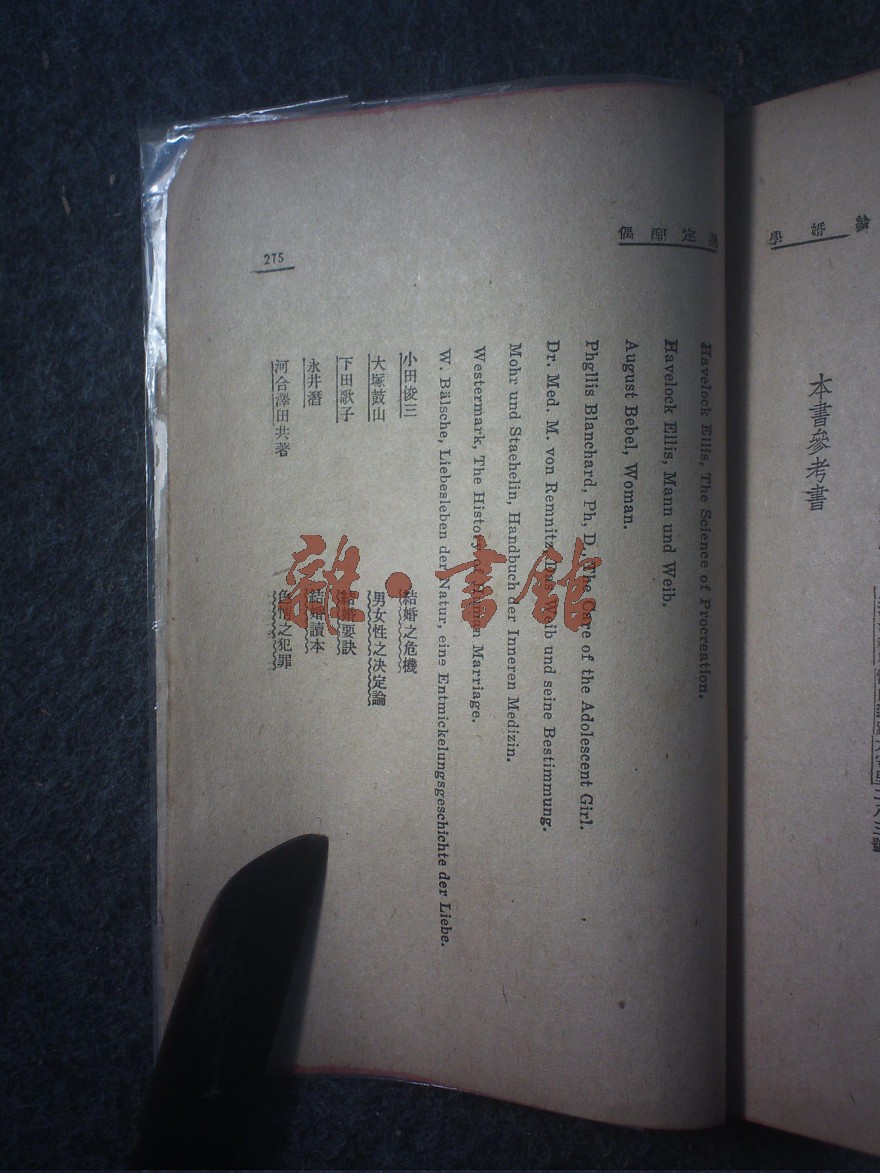 學婚
本書參考書
偶配定
Havelock Ellis, The Science of Procreation.
Havelock Ellis, Mann und Weib.
August Bebel, Woman.
Phgllis Blanchard, Ph, D., The Care of the Adolescent Girl.
Dr. Med. M. von Remnitz, Das Weib und seine Bestimmung.
Mohr und Staehelin, Handbuch der Inneren Medizin.
Westermark, The History of Human Marriage.
W. Bälsche, Liebesleben der Natur, eine Entmickelungsgeschichte der Liebe.
小田俊三 結婚之危機
大塚鼓山 男女性之決定論
下田歌子 結婚要訣
永井潛 結婚讀本
河合澤田共著 色情之犯罪
275
雜·書館